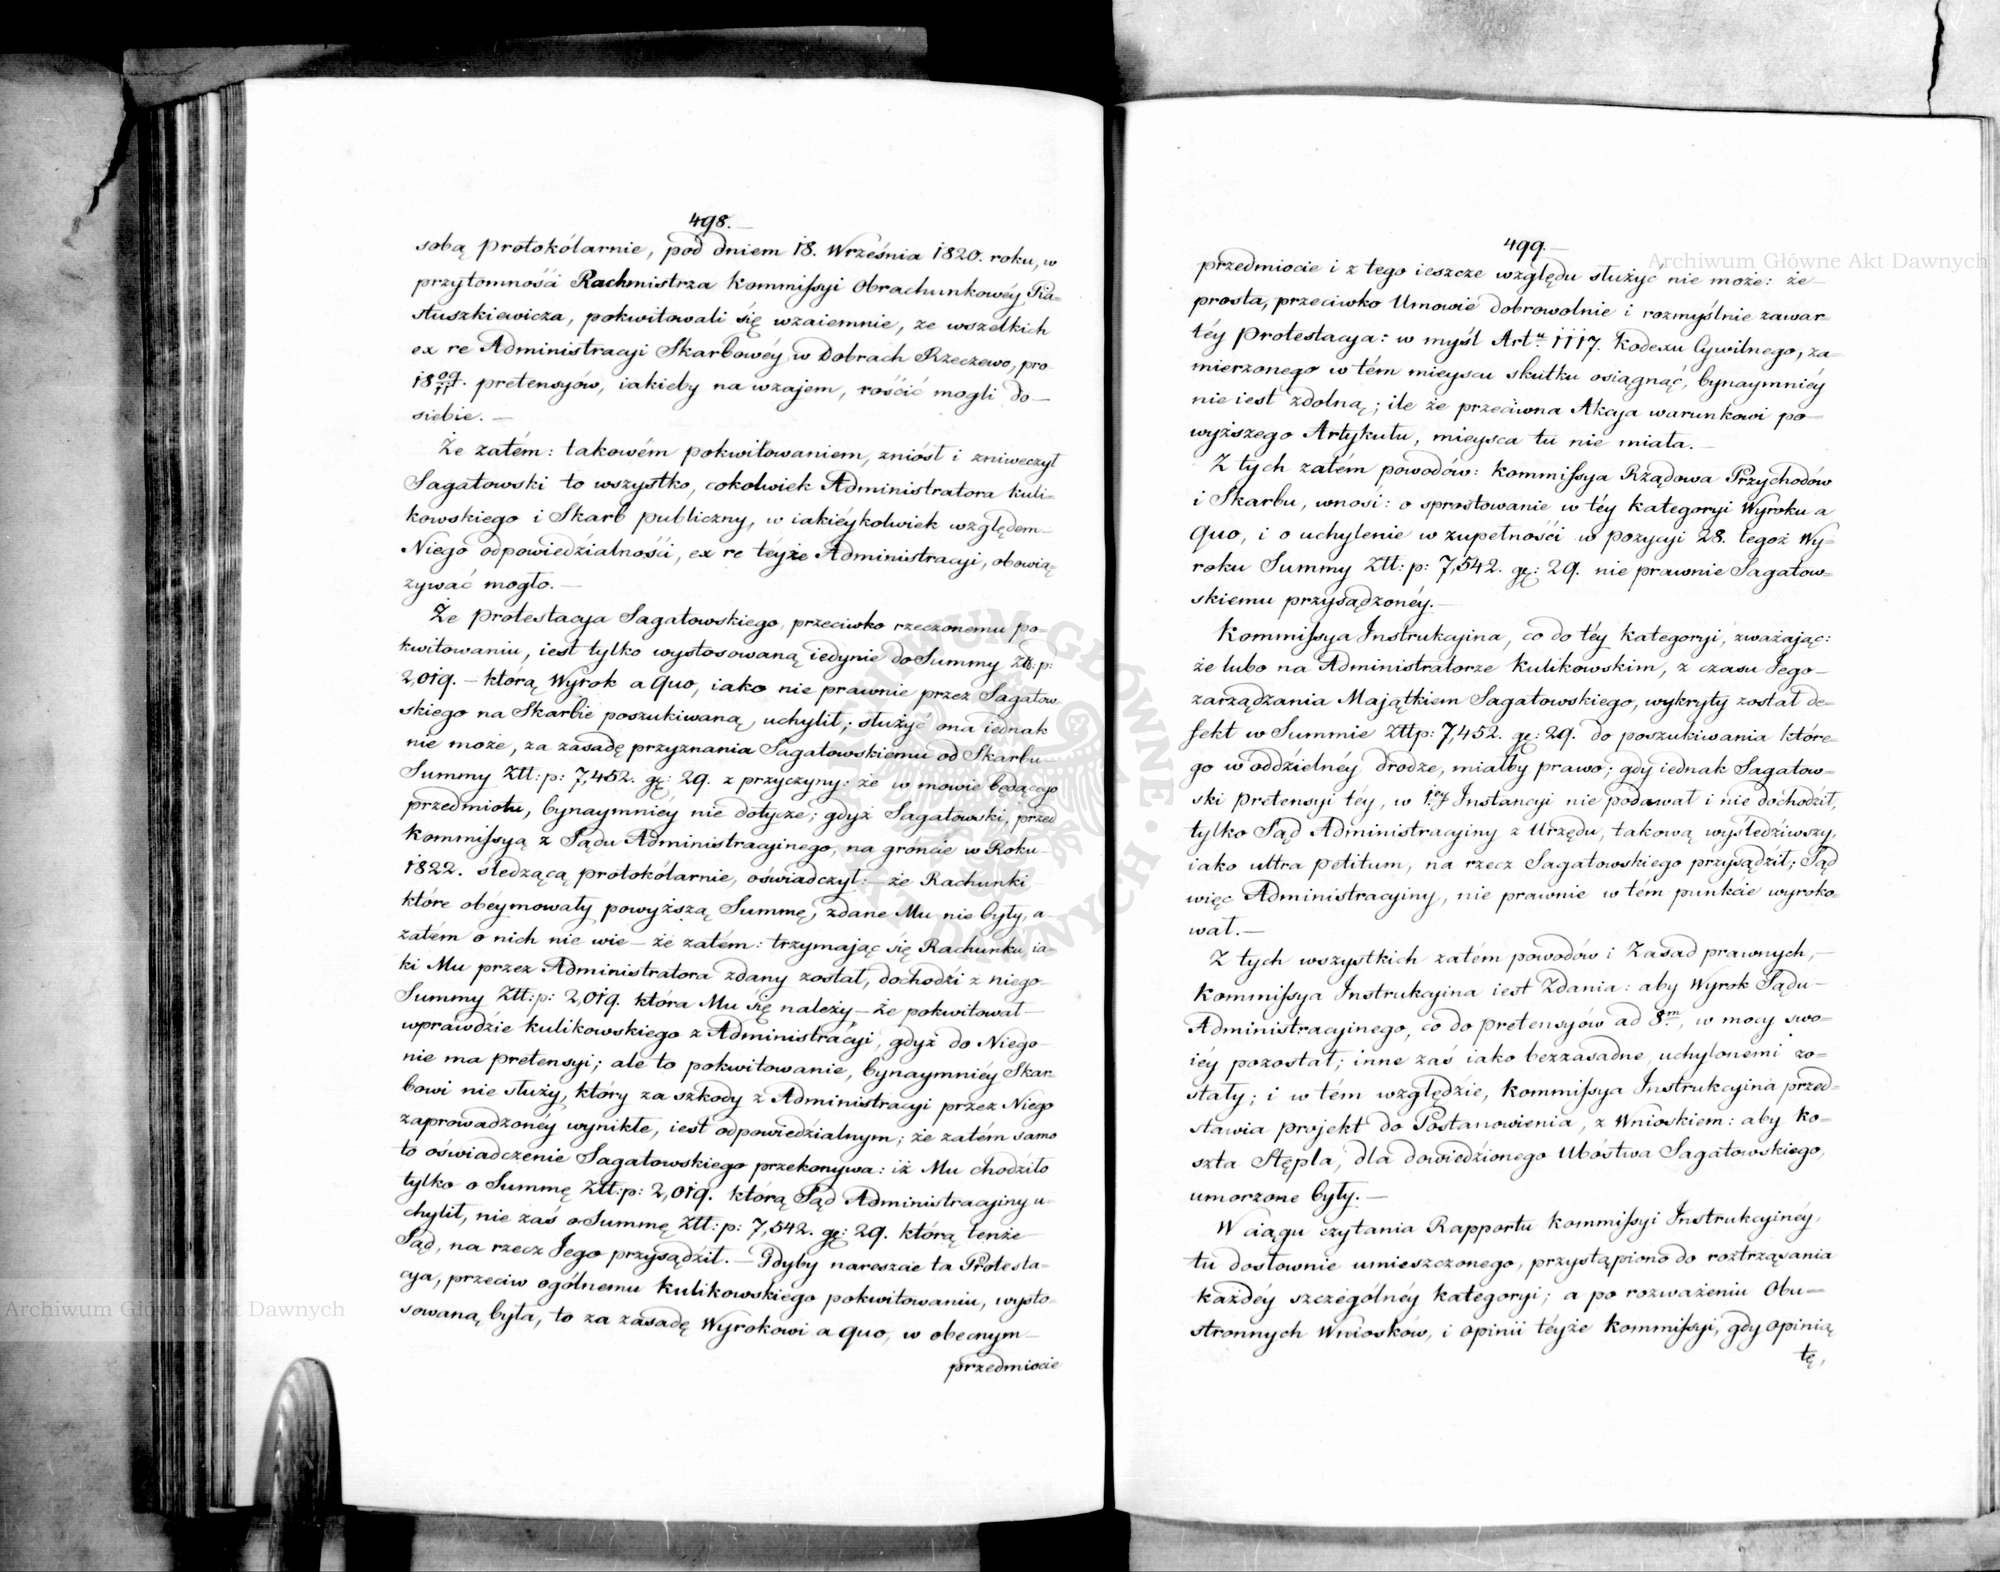 498.—
sobą protokólarnie, pod dniem 18. Września 1820. roku, w
przytomnośći Rachmistrza Kommissyi Obrachunkowéy Pia-
stuszkiewicza, pokwitowali się wzaiemnie, ze wszelkich
ex re Administracyi Skarbowéy w Dobrach Rzeczewo, pro
18 09/11. pretensyów, iakieby na wzajem, rośćić mogli do—
siebie.—
Że zatém: takowém pokwitowaniem, zniósł i zniweczył
Sagatowski to wszystko, cokolwiek Administratora Kuli-
kowskiego i Skarb publiczny, w iakiéykolwiek względem—
Niego odpowiedźialnośći, ex re téyże Administracyi, obowią
zywać mogło.—
Że protestacya Sagatowskiego, przeciwko rzeczonemu po-
kwitowaniu, iest tylko wystosowaną iedynie do Summy Ztt. p:
2,019.— którą Wyrok a Quo, iako nie prawnie przez Sagatow
skiego na Skarbie poszukiwaną, uchylił; służyć ona iednak
nie może, za zasadę przyznania Sagatowskiemu od Skarbu
Summy Ztt: p: 7,452. gr: 29. z przyczyny: że w mowie będącego
przedmiotu, bynaymniey nie dotycze; gdyż Sagatowski, przed
Kommissyą z Sądu Administracyinego, na gronćie w Roku
1822. śledzącą protokólarnie, oświadczył:— że Rachunki
które obéymowały powyższą Summę, zdane Mu nie były, a-
zatém o nich nie wie— że zatém: trzymając się Rachunku, ia-
ki Mu przez Administratora zdany został, dochodźi z niego—
Summy Ztt: p: 2,019. która Mu się należy— Że pokwitował—
wprawdźie Kulikowskiego z Administracyi, gdyż do Niego—
nie ma pretensyi; ale to pokwitowanie, bynaymniéy Skar-
bowi nie służy, który za szkody z Administracyi przez Niego
zaprowadzoney wynikłe, iest odpowiedźialnym; że zatém samo
to oświadczenie Sagatowskiego przekonywa: iż Mu chodźiło
tylko o Summę Ztt: p: 2,019. którą Sąd Administracyiny u-
chylił, nie zaś o Summę Ztt: p: 7,542. gr: 29. którą tenże
Sąd, na rzecz Jego przysądźił.— Gdyby nareszcie ta Protesta-
cya, przeciw ogólnemu Kulikowskiego pokwitowaniu, wysto-
sowaną była, to za zasadę Wyrokowi a quo, w obecnym—
przedmiocie
499.—
przedmiocie i z tego ieszcze względu służyć nie może: że—
prosta, przeciwko Umowie dobrowolnie i rozmyślnie zawar-
téy Protestacya: w myśl Art. 1117. Kodexu Cywilnego, za-
mierzonego w tém mieyscu skutku osiągnąć, bynaymniéy
nie iest zdolną; ile że przeciwna Akcya warunkowi po-
wyższego Artykułu, mieysca tu nie miała.—
Z tych zatém powodów: Kommissya Rządowa Przychodów
i Skarbu, wnosi: o sprostowanie w téy kategoryi Wyroku a
Quo, i o uchylenie w zupełnośći w pozycyi 28. tegoż Wy-
roku Summy Ztt: p: 7,542. gr: 29. nie prawnie Sagatow-
skiemu przysądzonéy.—
Kommissya Instrukcyina, co do téy kategoryi, zważając:
że lubo na Administratorze Kulikowskim, z czasu Jego—
zarządzania Majątkiem Sagatowskiego, wykryty został de-
fekt w Summie Zttp: 7,452. gr: 29. do poszukiwania które-
go w oddźielnéy drodze, miałby prawo; gdy iednak Sagatow-
ski Pretensyi téy, w 1ey Instancyi nie podawał i nie dochodźił,
tylko Sąd Administracyiny z Urzędu, takową wyśledźiwszy,
iako ultra petitum, na rzecz Sagatowskiego przysądźił; Sąd
więc Administracyiny, nie prawnie w tém punkcie wyroko-
wał.—
Z tych wszystkich zatém powodów i Zasad prawnych,—
Kommissya Instrukcyina iest Zdania: aby Wyrok Sądu—
Administracyinego, co do pretensyów ad 8m, w mocy swo-
iéy pozostał; inne zaś iako bezzasadne, uchylonemi zo-
stały; i w tém względźie, Kommissya Instrukcyina przed-
stawia projekt do Postanowienia, z Wnioskiem: aby ko-
szta Stępla, dla dowiedźionego Ubóstwa Sagatowskiego,
umorzone były.—
W ciągu czytania Rapportu Kommissyi Instrukcyinéy,
tu dosłownie umieszczonego, przystąpiono do roztrząsania
każdéy szczególnéy kategoryi; a po rozważeniu Obu-
stronnych Wniosków, i opinii téyże Kommissyi, gdy opinią
tę,
Archiwum Główne Akt Dawnych
Archiwum Główne Akt Dawnych
ARCHIWUM GŁÓWNE AKT DAWNYCH